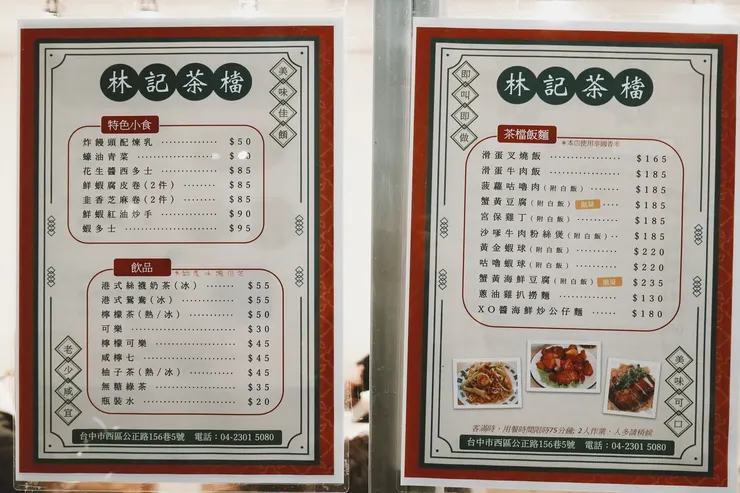 林記茶檔
美味佳餚
特色小食
炸饅頭配煉乳 $50
蠔油青菜
花生醬西多士 $85
鮮蝦腐皮卷(2件) $85
韭香芝麻卷(2件) $85
鮮蝦紅油炒手 $90
蝦多士 $95
飲品
港式絲襪奶茶(冰) $55
港式鴛鴦(冰) $55
檸檬茶(熱/冰) $50
可樂 $30
檸檬可樂 $45
咸檸七 $45
柚子茶(熱/冰) $45
無糖綠茶 $35
瓶裝水 $20
老少咸宜
台中市西區公正路156巷5號 電話:04-2301 5080
即叫即做
林記茶檔
茶檔飯麵
滑蛋叉燒飯 $165
滑蛋牛肉飯 $185
菠蘿咕嚕肉(附白飯) $185
蟹黃豆腐(附白飯) $185
宮保雞丁(附白飯) $185
沙嗲牛肉粉絲煲(附白飯) $185
黃金蝦球(附白飯) $220
咕嚕蝦球(附白飯) $220
蟹黃海鮮豆腐(附白飯) $235
蔥油雞扒撈麵 $130
XO醬海鮮炒公仔麵 $180
美味可口
客滿時,用餐時間限時75分鐘; 2人作業,人多請稍候
台中市西區公正路156巷5號 電話:04-2301 5080